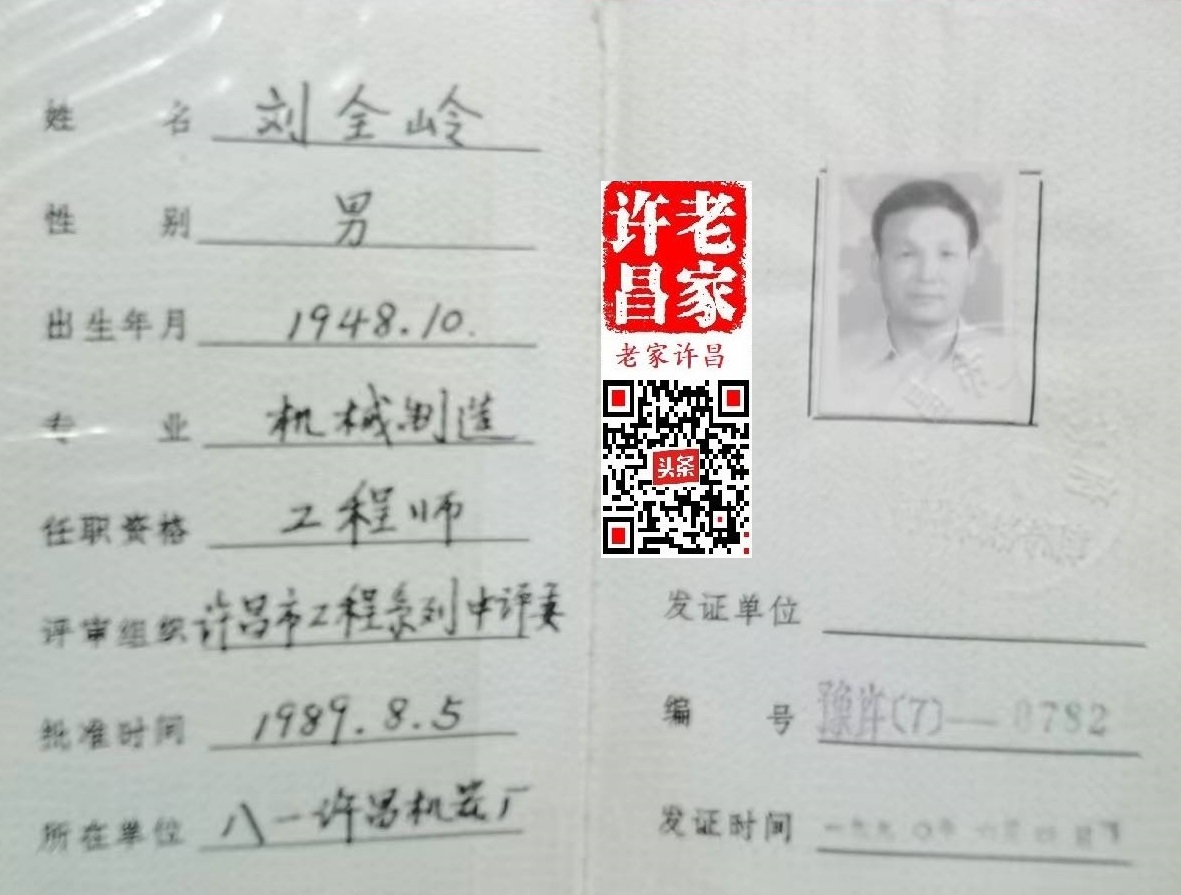 姓名 刘全岭
性别 男
出生年月 1948.10.
专业 机械制造
任职资格 工程师
评审组织 许昌市工程系列中评委
批准时间 1989.8.5
所在单位 八一许昌机器厂
许老
昌家
老家许昌
头条
发证单位
编号 豫许(7)—0782
发证时间 一九九〇年六月